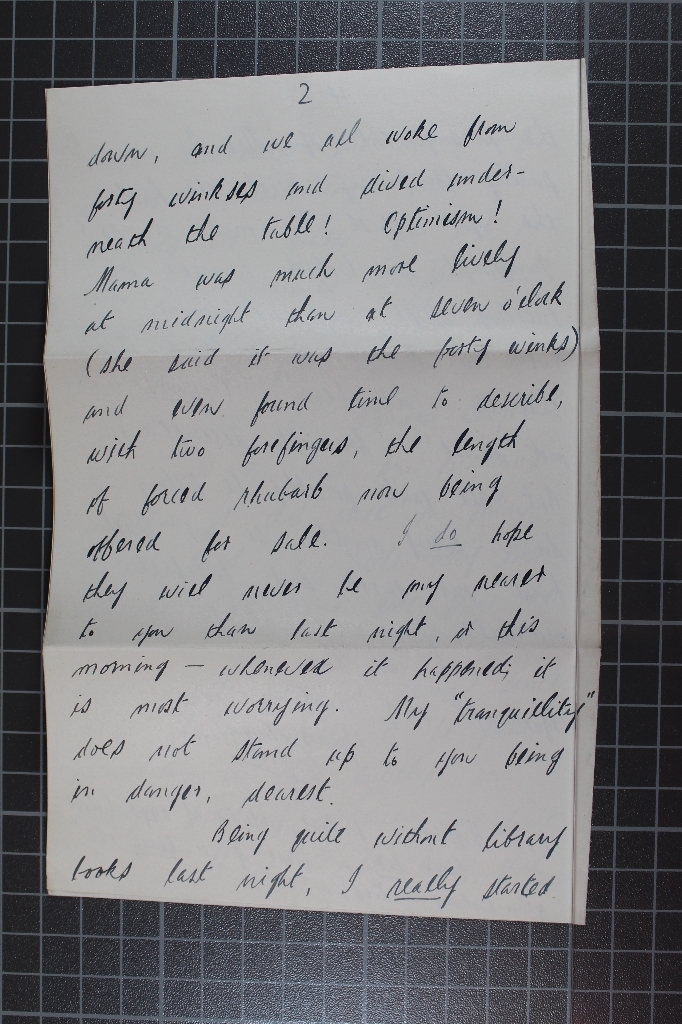 2
down, and we all woke from
forty winkses and dived under-
neath the table! Optimism!
Mama was much more lively
at midnight than at seven o'clock
(she said it was the forty winks)
and even found time to describe,
with two forefingers, the length
of forced rhubarb now being
offered for sale. I do hope
they will never be any nearer
to you than last night, or this
morning — whenever it happened; it
is most worrying. My "tranquillity"
does not stand up to you being
in danger, dearest.
Being quite without library
books last night, I really started